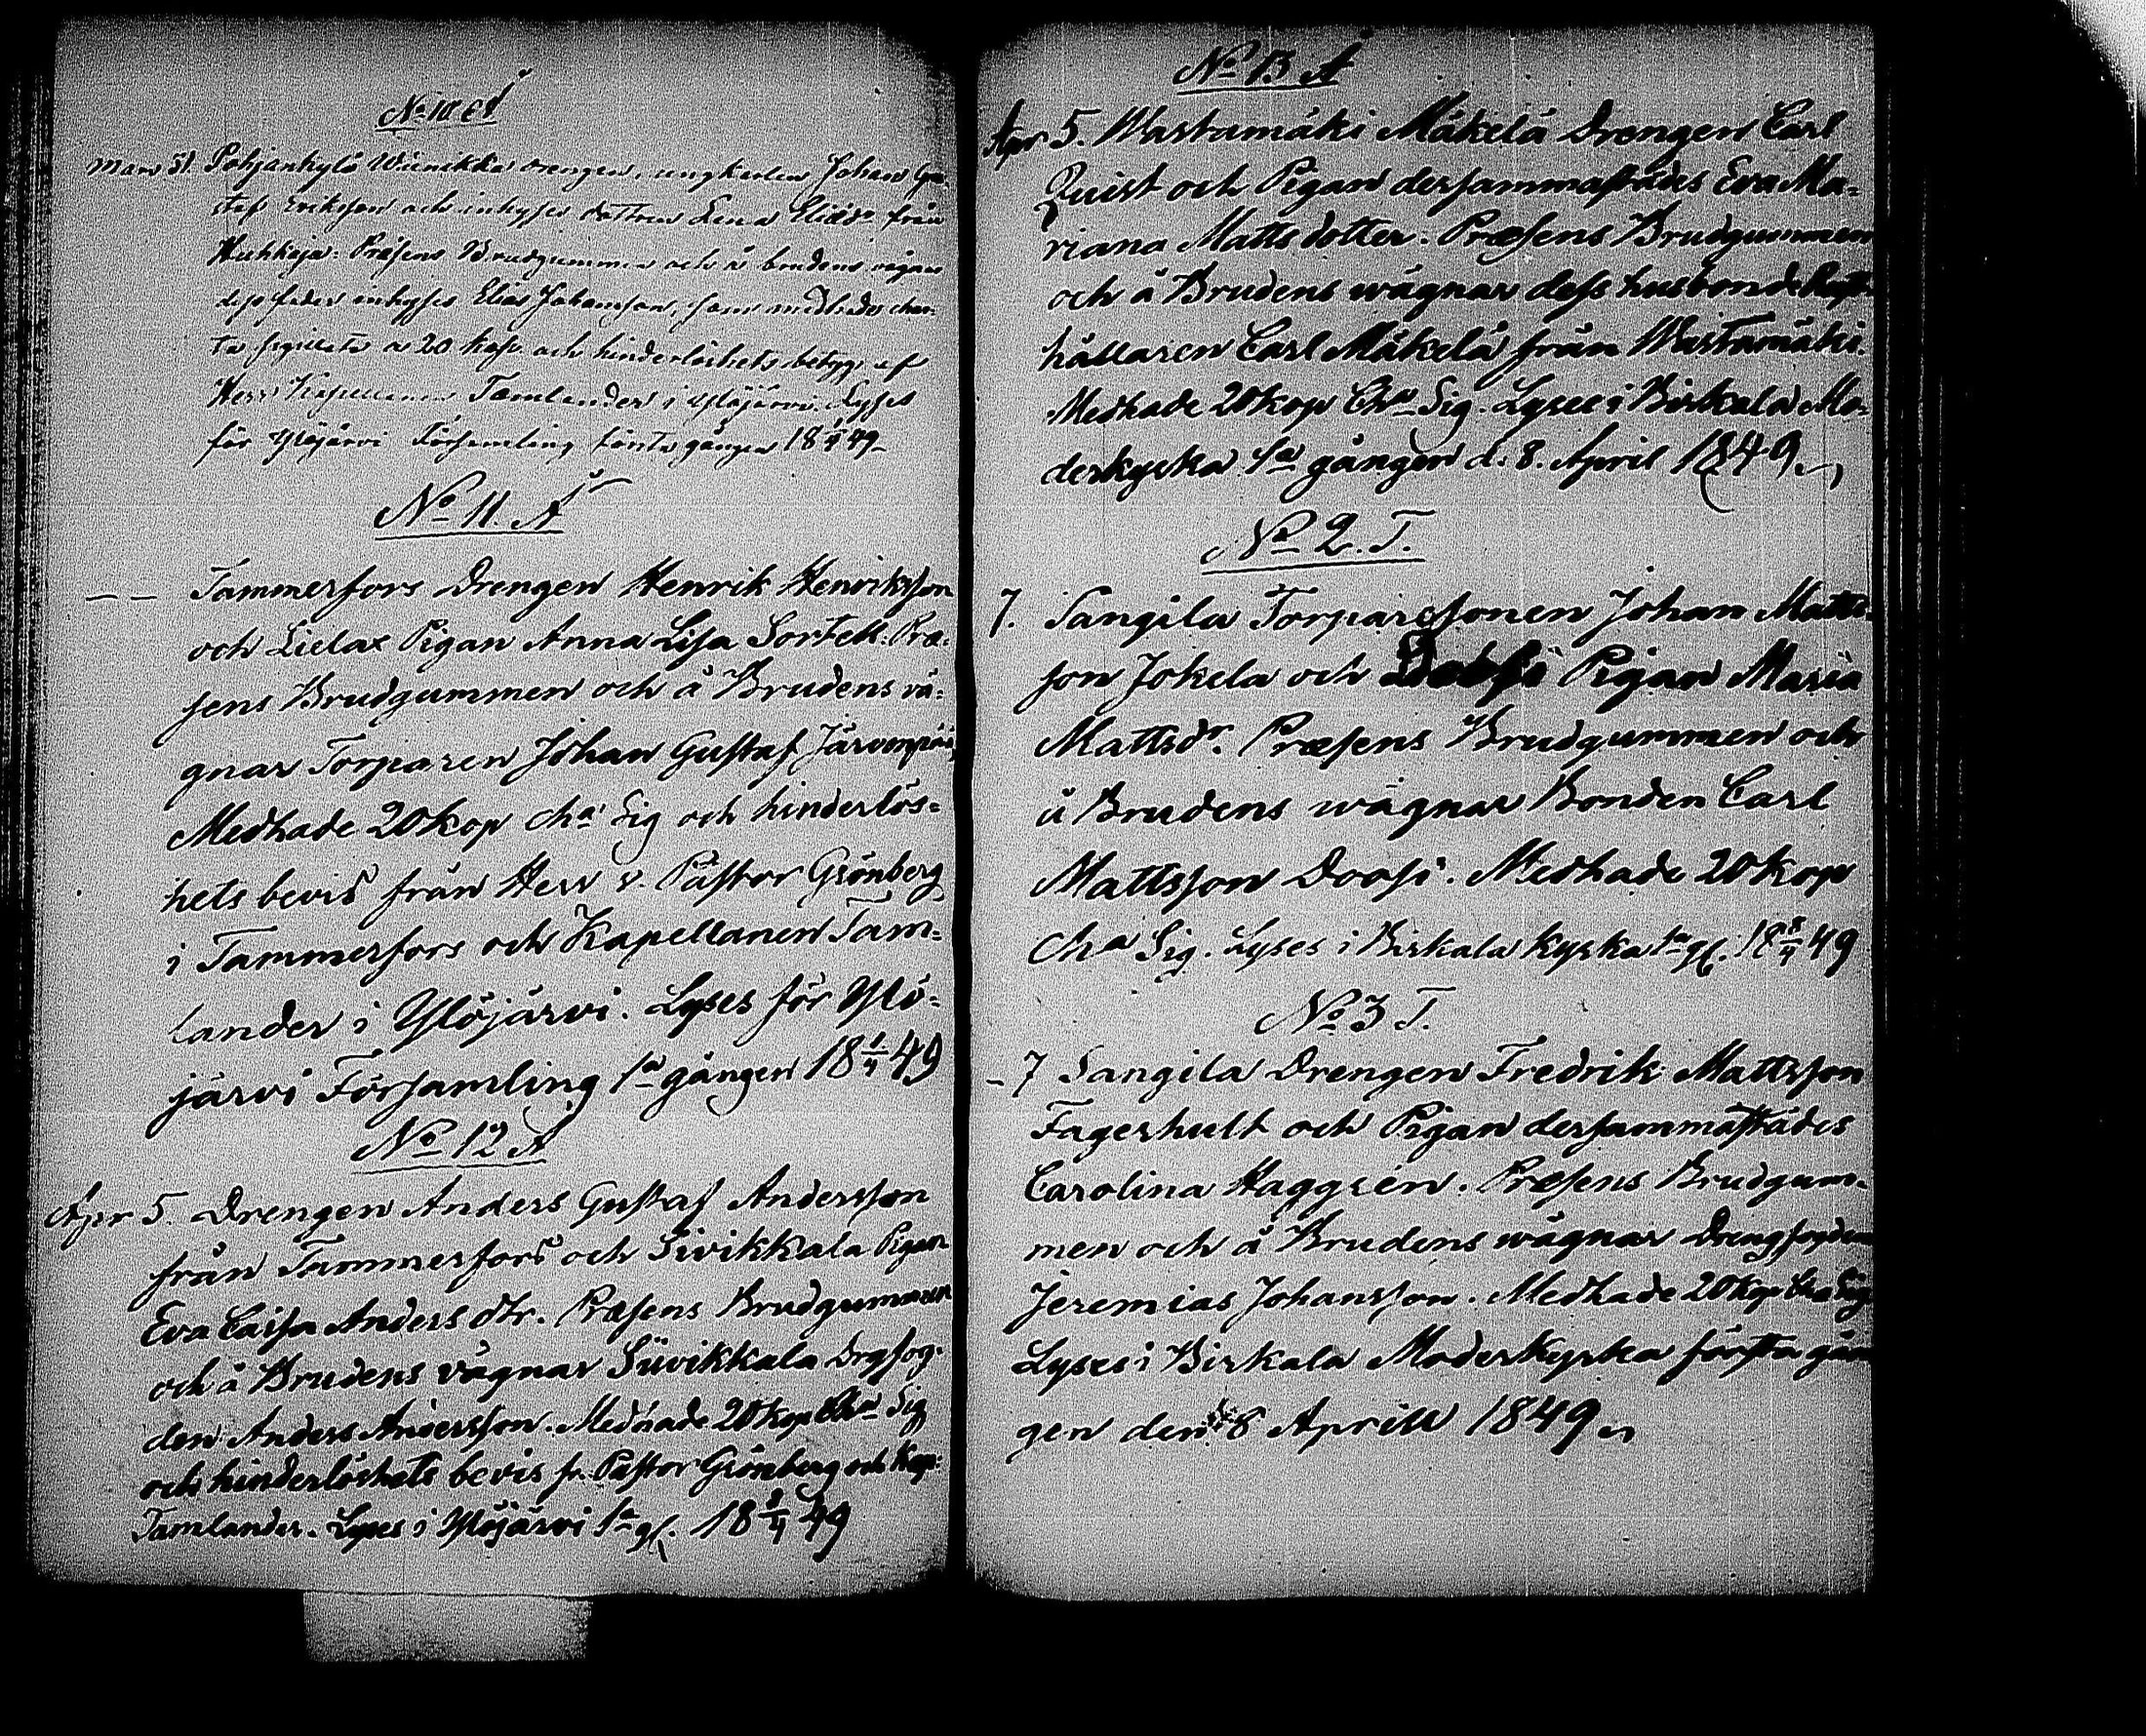 No 10 Å
Mars 31. Pohjankylä Wäinikka drengen, ungkarlen Johan Gu-
staf Eriksson och inhyses dottren Lena Eliædr från
Huhkaja: Præsens Brudgummen och å brudens vägnar
dess fader inhyses Elias Johansson, som medhade char-
ta sigillata a 20 kop. och hinderlöshets betyg af
Herr Kapellanen Tamlander i Ylöjärvi. Lyses
för Ylöjärvi Församling första gången 18 1/4 49
No 11. Å
— — Tammerfors Drengen Henrik Henriksson
och Lielax Pigan Anna Lisa Sortell. Præ-
sens Brudgummen och å Brudens vä-
gnar Torparen Johan Gustaf Järvenpää,
Medhade 20 kop cha Sig och hinderlös-
hets bevis från Herr v. Pastor Grönberg
i Tammerfors och Kapellanen Tam-
lander i Ylöjärvi. Lyses för Ylö-
järvi Församling 1a gången 18 1/4 49
No 12 Å
Apr 5. Drengen Anders Gustaf Andersson
från Tammerfors och Siivikkala Pigan
Eva Caisa Anders dtr. Præsens Brudgummen
och å Brudens vägnar Siivikkala Drgfog-
den Anders Andersson. Medhade 20 kop Cha Sig
och hinderlöshets bevis fr. Pastor Grönberg och Kap:
Tamlander. Lyses i Ylöjärvi 1a gg. 18 8/4 49
No 13 Å
Apr 5. Wastamäki Mäkelä Drengen Carl
Quist och Pigan dersammastädes Eva Ma-
riana Matts dotter. Præsens Brudgummen
och å Brudens wägnar dess husbonde Rust-
hållaren Carl Mäkelä från Wastamäki.
Medhade 20 kop Cha Sig. Lyses i Birkala Mo-
derkyrka 1a gången d. 8. April 1849
No 2. T.
7. Sangila Torparesonen Johan Matts-
son Jokela och Pigan Maria
Mattsdr. Præsens Brudgummen och
å Brudens wägnar Bonden Carl
Mattsson Doosi. Medhade 20 kop
Cha Sig. Lyses i Birkala kyrka 1a gg. 18 8/4 49
No 3 T.
- 7 Sangila Drengen Fredrik Mattsson
Fagerhult och Pigan dersammastädes
Carolina Haggrén. Præsens Brudgum-
men och å Brudens wägnar Drengfogden
Jeremias Johansson. Medhade 20 kop Cha Sig
Lyses i Birkala Moderkyrka första gån-
gen den 8 Aprill 1849